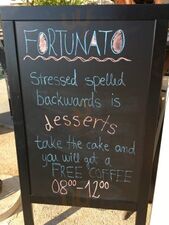 FORTUNATO
Stressed spelled
backwards is
desserts
take the cake and
you will get a
FREE COFFEE
08:00-12:00